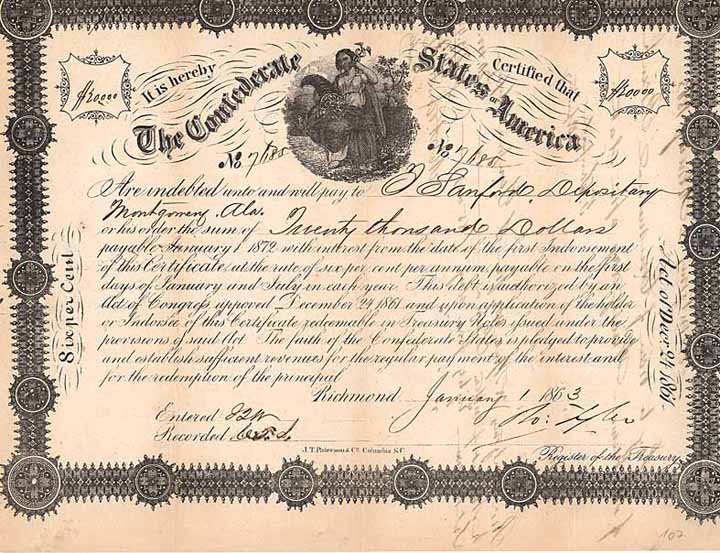 $20000
It is hereby
Certified that
$20000
The Confederate States of America
No 7688
No 7688
Are indebted unto and will pay to J Sanford, Depositary
Montgomery, Ala.
or his order the sum of Twenty thousand Dollars
payable January 1 1872 with interest from the date of the first Indorsement
of this Certificate at the rate of six per cent per annum, payable on the first
days of January and July in each year. This debt is authorized by an
Act of Congress approved December 24 1861 and upon application of the holder
or Indorsee of this Certificate redeemable in Treasury Notes issued under the
provisions of said Act. The faith of the Confederate States is pledged to provide
and establish sufficient revenues for the regular payment of the interest and
for the redemption of the principal
Richmond January 1 1863
Entered
Recorded
Ro: Tyler
J.T. Paterson & Co. Columbia S.C.
Register of the Treasury
Six per Cent
Act of Decr. 24 1861
102